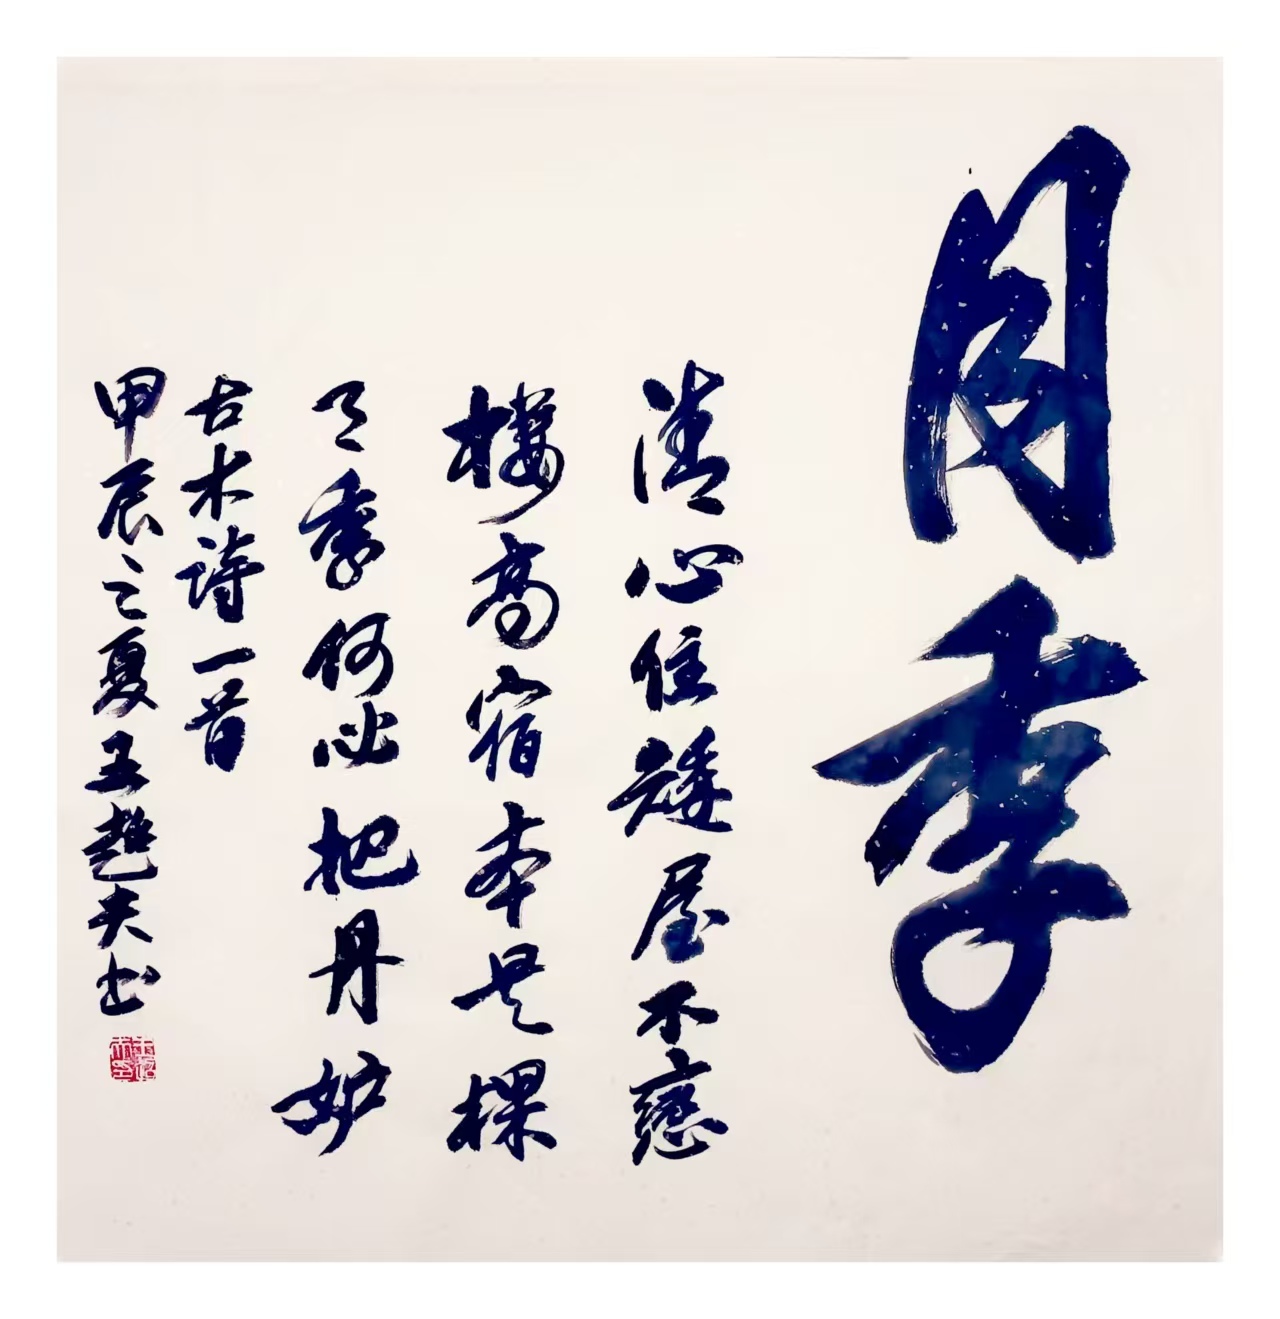 月季
清心住矮屋不戀
樓高宿本是棵
月季何必把丹妒
古木詩一首
甲辰之夏王超夫书